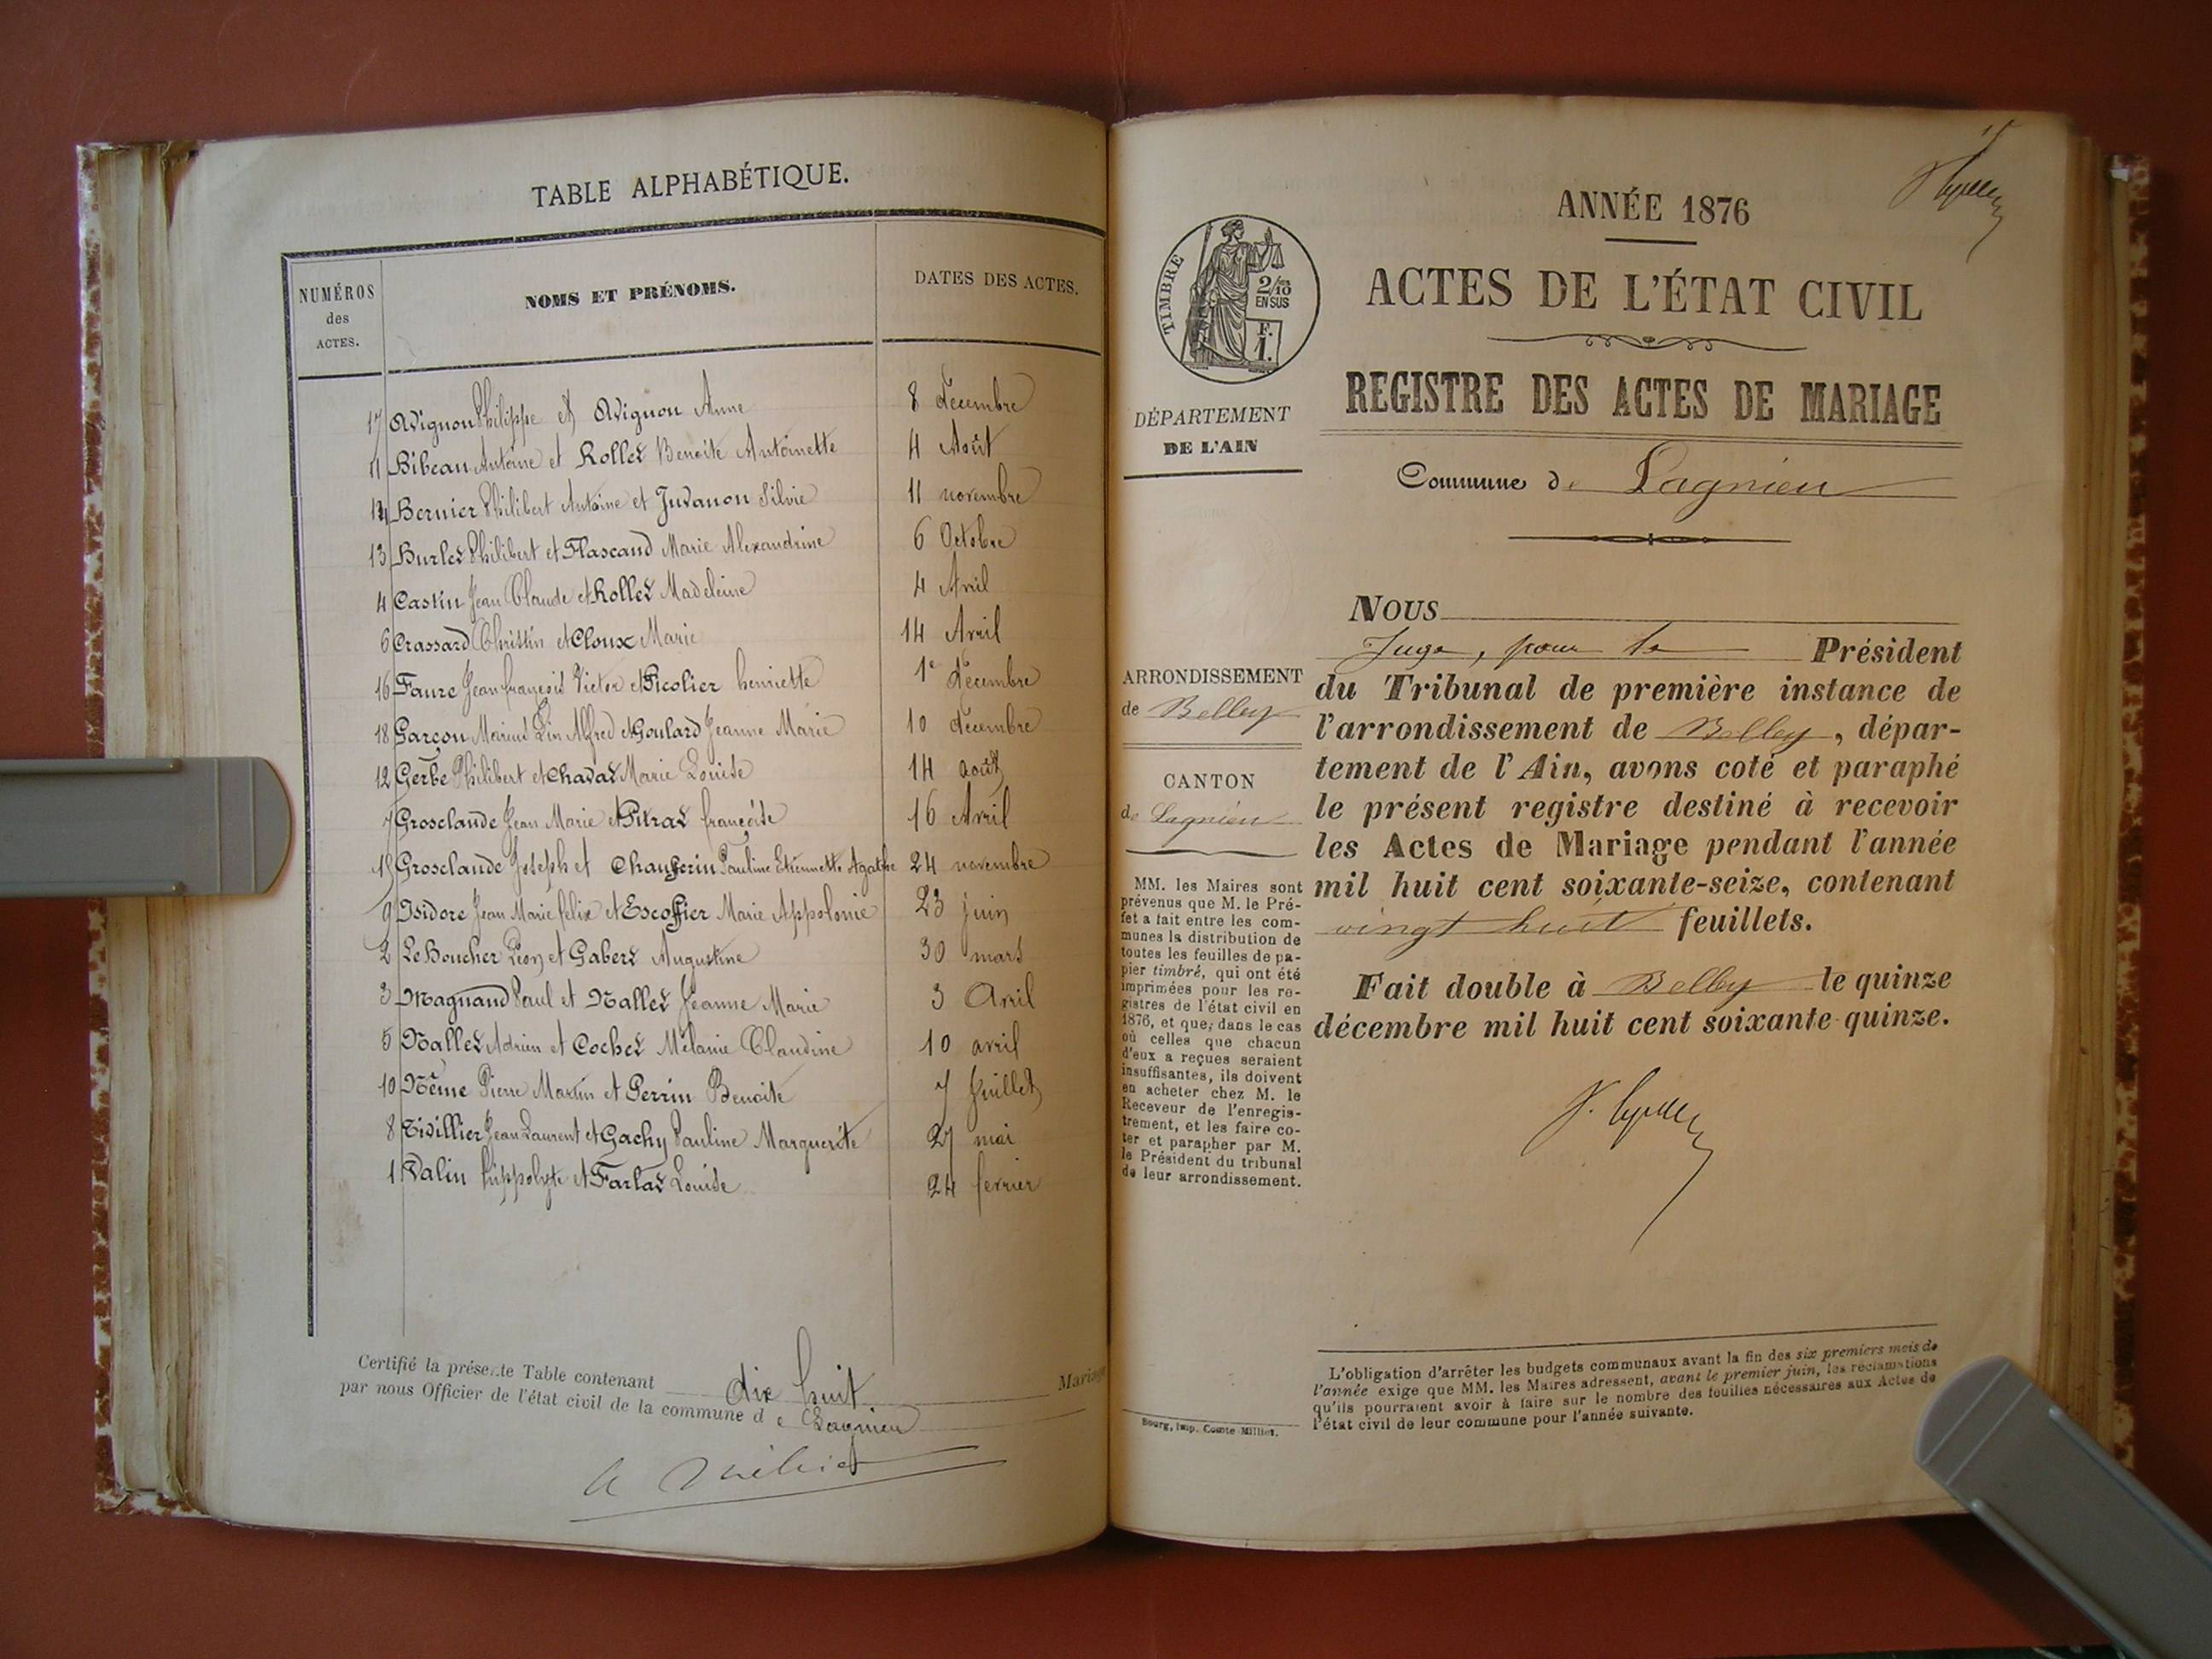 TABLE ALPHABÉTIQUE.
NUMÉROS des ACTES.
NOMS ET PRÉNOMS.
DATES DES ACTES.
17 Avignon Philippe et Avignon Anne 8 décembre
11 Bibeau Antoine et Rollet Benoite Antoinette 4 Août
14 Bernier Philibert Antoine et Juvanon Silvie 11 novembre
13 Burlet Philibert et Flascaud Marie Alexandrine 6 Octobre
4 Castin Jean Claude et Rollet Madeleine 4 Avril
6 Crassard Christin et Cloux Marie 14 Avril
16 Faure Jean françois Victor et Picolier henriette 1e décembre
18 Garçon Marius Lin Alfred et Goulard Jeanne Marie 10 décembre
12 Gerbe Philibert et Chavat Marie Louise 14 août
7 Grosclaude Jean Marie et Pitrat françoise 16 Avril
15 Grosclaude Joseph et Pauline Etiennette Agathe 24 novembre
9 Isidore Jean Marie félix et Escoffier Marie Appolonie 23 juin
2 LeBoucher Léon et Gabert Augustine 30 mars
3 Magnand Paul et Nallet Jeanne Marie 3 Avril
5 Nallet Adrien et Cochet Mélanie Claudine 10 avril
10 Nême Pierre Martin et Perrin Benoite 7 Juillet
8 Tivillier Jean Laurent et Gachy Pauline Marguerite 27 mai
1 Valin hippolyte et Farlat Louise 24 fevrier
Certifié la présente Table contenant dix huit Mariages
par nous Officier de l'état civil de la commune de Lagnieu
ANNÉE 1876
ACTES DE L'ÉTAT CIVIL
REGISTRE DES ACTES DE MARIAGE
TIMBRE
2/10 EN SUS
F. 1.
DÉPARTEMENT
DE L'AIN
Commune de Lagnieu
ARRONDISSEMENT
de Belley
CANTON
de Lagnieu
MM. les Maires sont
prévenus que M. le Pré-
fet a fait entre les com-
munes la distribution de
toutes les feuilles de pa-
pier timbré, qui ont été
imprimées pour les re-
gistres de l'état civil en
1876, et que, dans le cas
où celles que chacun
d'eux a reçues seraient
insuffisantes, ils doivent
en acheter chez M. le
Receveur de l'enregis-
trement, et les faire co-
ter et parapher par M.
le Président du tribunal
de leur arrondissement.
NOUS
Juge, pour le Président
du Tribunal de première instance de
l'arrondissement de Belley, dépar-
tement de l'Ain, avons coté et paraphé
le présent registre destiné à recevoir
les Actes de Mariage pendant l'année
mil huit cent soixante-seize, contenant
vingt huit feuillets.
Fait double à Belley le quinze
décembre mil huit cent soixante-quinze.
L'obligation d'arrêter les budgets communaux avant la fin des six premiers mois de
l'année exige que MM. les Maires adressent, avant le premier juin, les réclamations
qu'ils pourraient avoir à faire sur le nombre des feuilles nécessaires aux Actes de
l'état civil de leur commune pour l'année suivante.
Bourg, imp. Comte-Milliet.